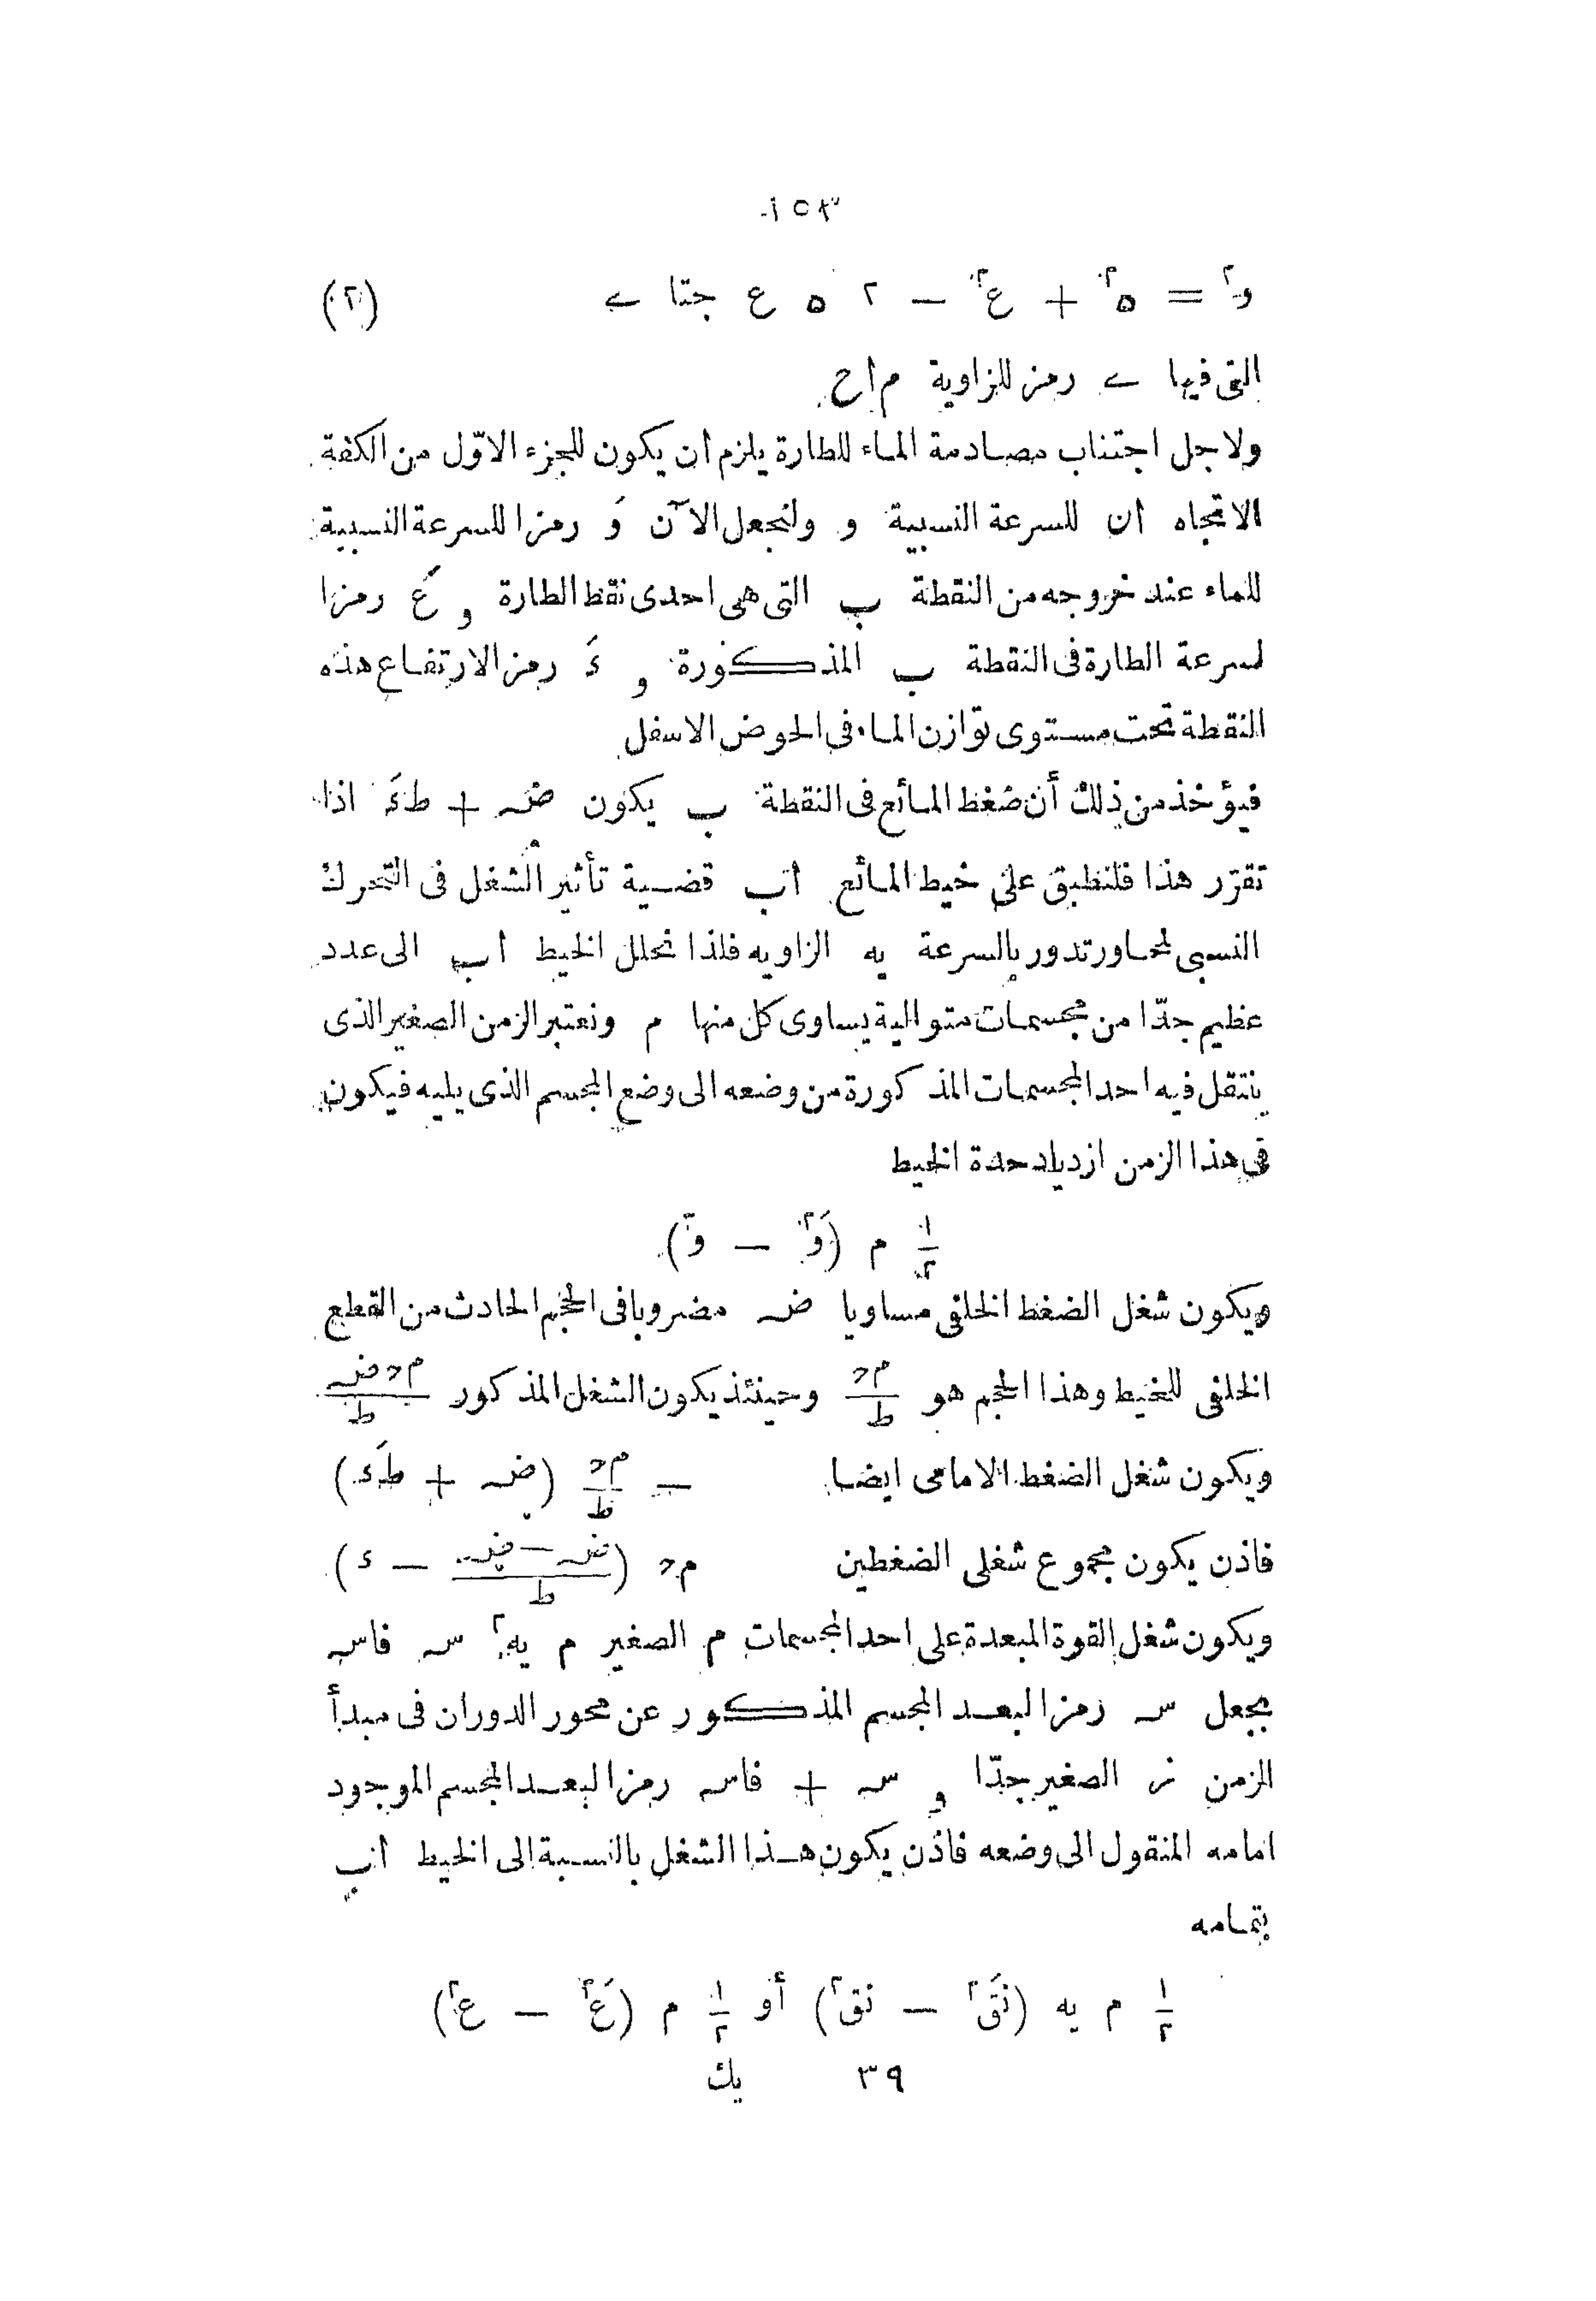 ١٥٣
و٢ = ه٢ + ع٢ — ٢ ه ع جتا ے (٢)
التى فيها ے رمز للزاوية م ا ح
ولاجل اجتناب مصادمة الماء للطارة يلزم أن يكون للجزء الاوّل من الكفة
الاتجاه ان للسرعة النسبية و ولنجعل الآن وَ رمزا للسرعة النسبية
للماء عند خروجه من النقطة ب التى هى احدى نقط الطارة و عَ رمزا
لسرعة الطارة فى النقطة ب المذكورة و ءَ رمز الارتفاع هذه
النقطة تحت مستوى توازن الماء فى الحوض الاسفل
فيؤخذ من ذلك أن ضغط المائع فى النقطة ب يكون ضہ + طءَ اذا
تقرّر هذا فلنطبق على خيط المائع اب قضية تأثير الشغل فى التحرك
النسبى لمحاور تدور بالسرعة يه الزاويه فلذا نحلل الخيط اب الى عدد
عظيم جدّا من مجسمات متوالية يساوى كل منها م ونعتبر الزمن الصغير الذى
ينتقل فيه احد المجسمات المذكورة من وضعه الى وضع المجسم الذى يليه فيكون
فى هذا الزمن ازدياد حدة الخيط
١/٢ م (وَ٢ — و٢)
ويكون شغل الضغط الخلفى مساويا ضہ مضروبا فى الحجم الحادث من القطع
الخلفى للخيط وهذا الحجم هو م د/ط وحينئذ يكون الشغل المذكور م د ضہ/ط
ويكون شغل الضغط الامامى ايضا — م د/ط (ضہ + طءَ)
فاذن يكون مجموع شغلى الضغطين م د (ضہ — ضہ/ط — ء)
ويكون شغل القوة المبعدة على احد المجسمات م الصغير م يه٢ سہ فاسہ
بجعل سہ رمزا لبعد المجسم المذكور عن محور الدوران فى مبدأ
الزمن نر الصغير جدّا و سہ + فاسہ رمزا لبعد المجسم الموجود
امامه المنقول الى وضعه فاذن يكون هذا الشغل بالنسبة الى الخيط اب
بتمامه
١/٢ م يه (نقَ٢ — نق٢) أو ١/٢ م (عَ٢ — ع٢)
٣٩ يك